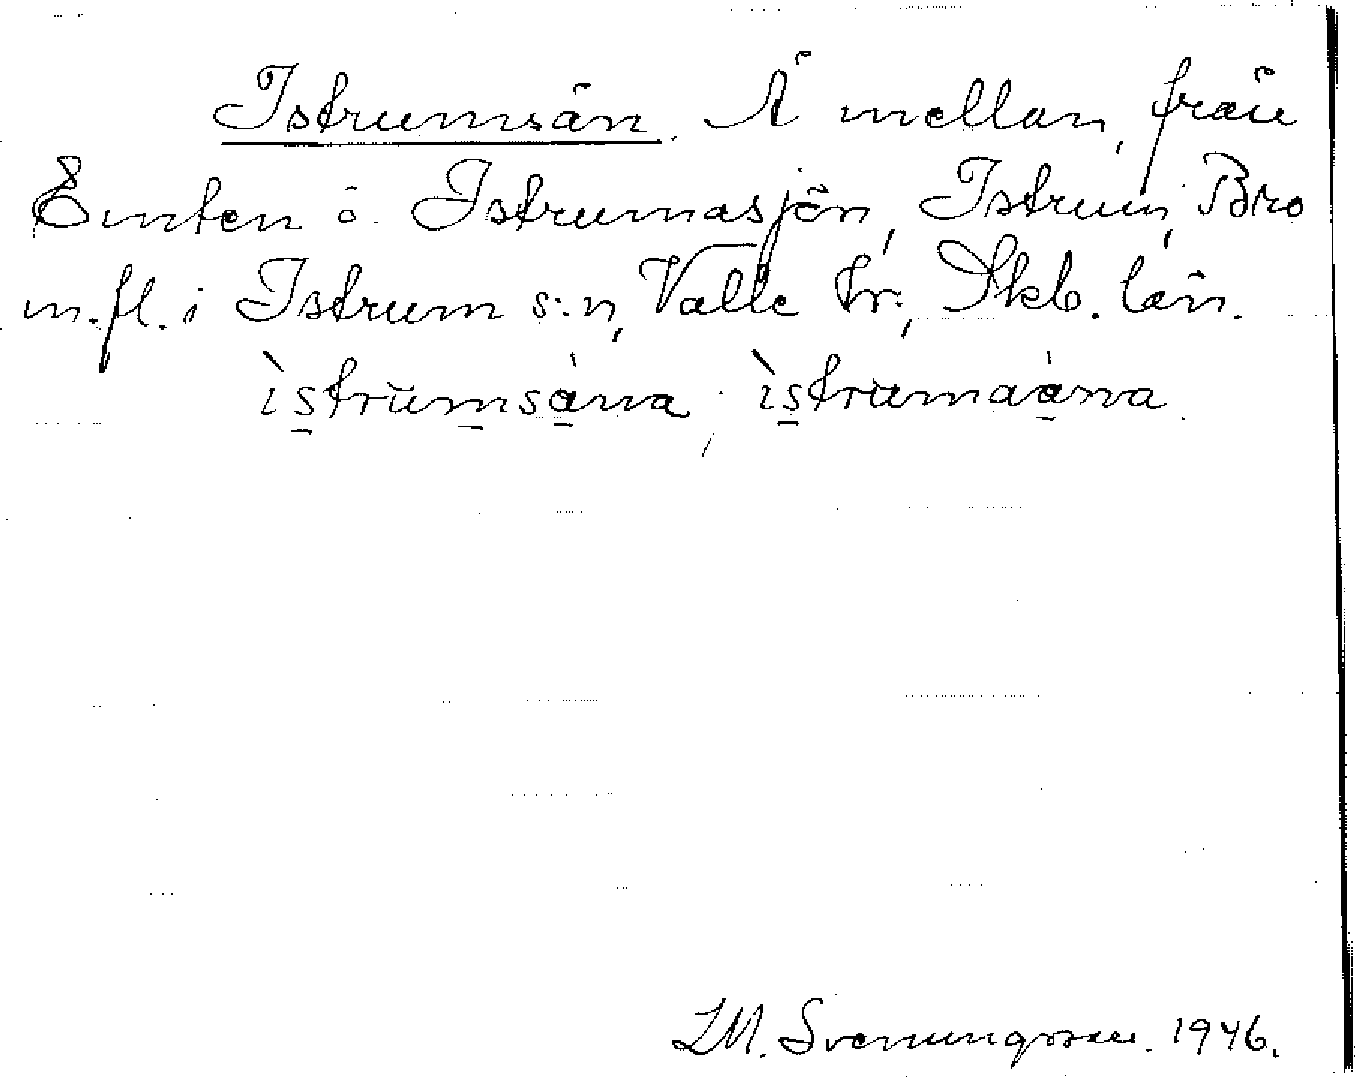 Istrumsån. Å mellan, från
Emten o. Istrumasjön, Istrum, Bro
m.fl. i Istrum s:n, Valle hr., Skb. län.
ìstru̅msána, ìstrumaána.
LM. Svenungsson. 1946.